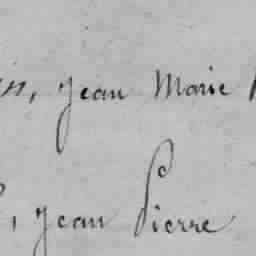 Jean Marie
Jean Pierre